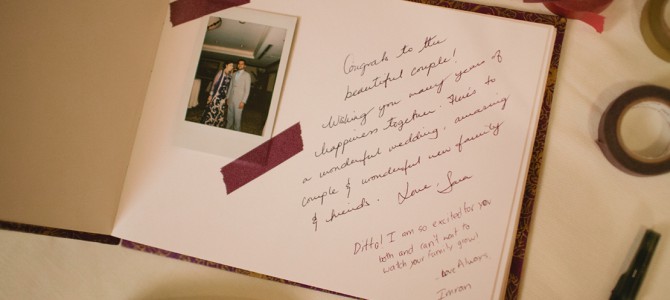 Congrats to the
beautiful couple!
Wishing you many years of
happiness together. Here's to
a wonderful wedding, amazing
couple & wonderful new family
& friends. Love, Sara
Ditto! I am so excited for you
both and can't wait to
watch your family grow!
Love Always,
Imran